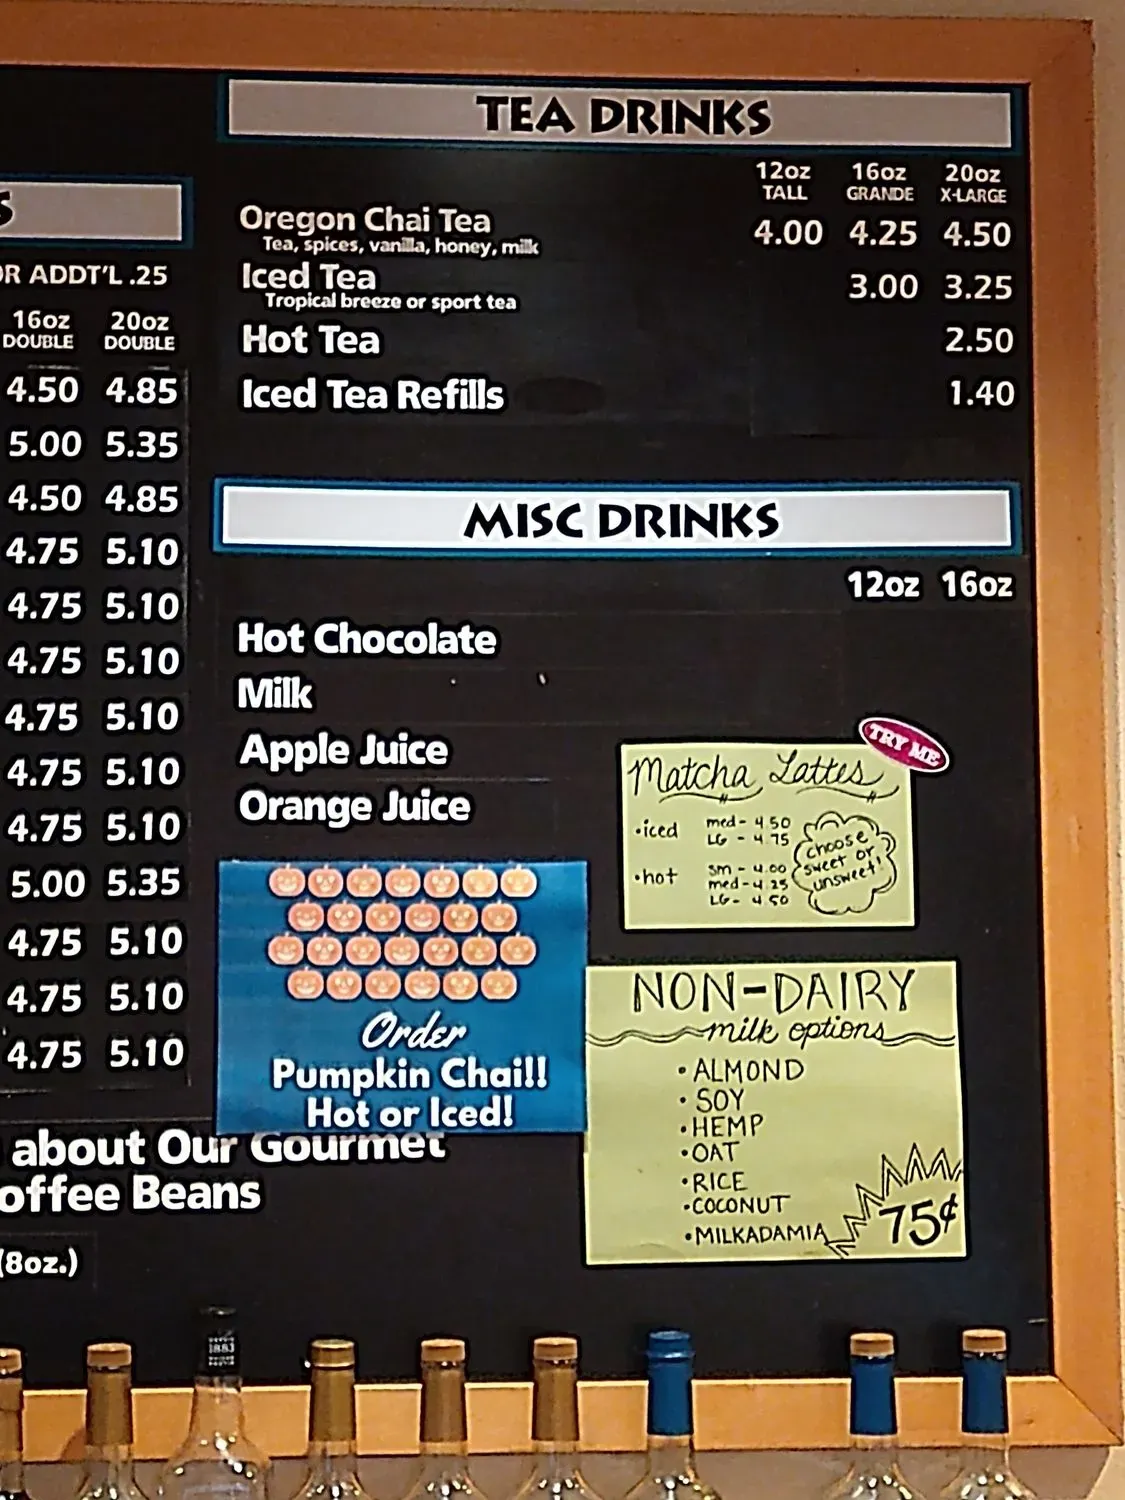 S
OR ADDT'L .25
16oz 20oz
DOUBLE DOUBLE
4.50 4.85
5.00 5.35
4.50 4.85
4.75 5.10
4.75 5.10
4.75 5.10
4.75 5.10
4.75 5.10
4.75 5.10
5.00 5.35
4.75 5.10
4.75 5.10
4.75 5.10
about Our Gourmet
offee Beans
(8oz.)
TEA DRINKS
12oz 16oz 20oz
TALL GRANDE X-LARGE
Oregon Chai Tea 4.00 4.25 4.50
Tea, spices, vanilla, honey, milk
Iced Tea 3.00 3.25
Tropical breeze or sport tea
Hot Tea 2.50
Iced Tea Refills 1.40
MISC DRINKS
12oz 16oz
Hot Chocolate
Milk
Apple Juice
Orange Juice
TRY ME
Matcha Lattes
•iced med- 4.50
LG - 4.75
•hot sm - 4.00
med-4.25
LG- 4.50
choose
sweet or
unsweet!
Order
Pumpkin Chai!!
Hot or Iced!
NON-DAIRY
milk options
•ALMOND
•SOY
•HEMP
•OAT
•RICE
•COCONUT
•MILKADAMIA
75¢
1883